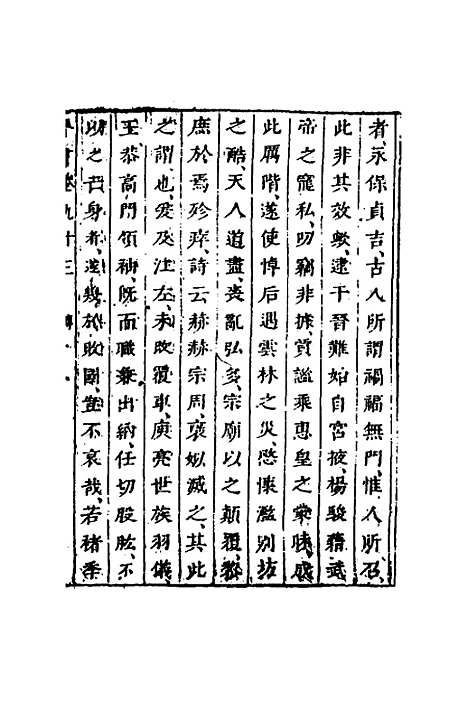 者、永保貞吉、古人所謂禍福無門、惟人所召、
此非其效歟、逮于晉難始自宮掖、楊駿藉武
帝之寵私、叨竊非據、賈謐乘惠皇之蒙昧、成
此厲階、遂使悼后遇雲林之災、愍懷濫別坊
之酷、天人道盡、喪亂弘多、宗廟以之顛覆、黎
庶於焉殄瘁、詩云赫赫宗周、褒姒滅之、其此
之謂也、爰及江左、未改覆車、庾亮世族羽儀、
王恭高門領袖、既而職兼出納、任切股肱、不
以之亡身者、遂幾於敗國、豈不哀哉、若褚季
晉書卷九十三